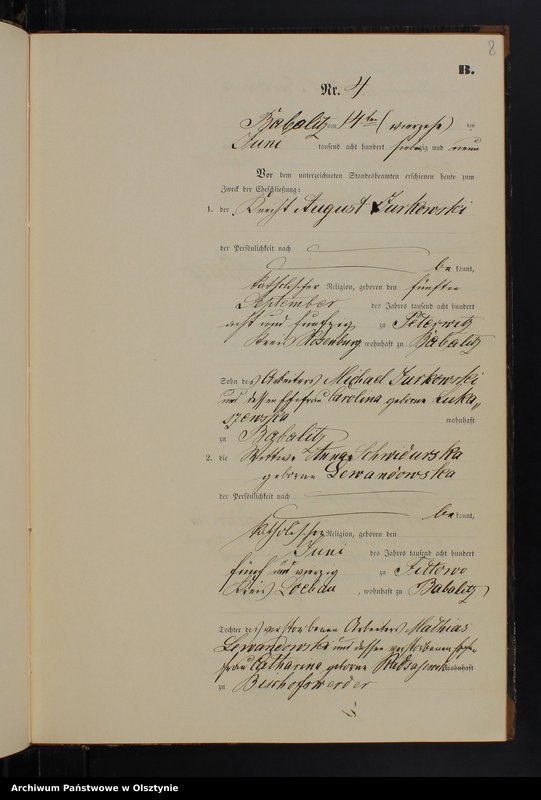 8
B.
Nr. 4
Babalitz am 14ten (vierzehn) ten
Juni tausend acht hundert siebzig und neun
Vor dem unterzeichneten Standesbeamten erschienen heute zum
Zweck der Eheschließung:
1. der Knecht August Jurkowski
der Persönlichkeit nach
be kannt,
katholischer Religion, geboren den fünften
September des Jahres tausend acht hundert
acht und fünfzig zu Peterwitz
Kreis Rosenburg wohnhaft zu Babalitz
Sohn des Arbeiters Michael Jurkowski
und dessen Ehefrau Carolina geborne Luka„
szewska wohnhaft
zu Babalitz
2. die Wittwe Anna Schwidurska
geborne Lewandowska
der Persönlichkeit nach
be kannt,
katholischer Religion, geboren den
Juni des Jahres tausend acht hundert
fünf und vierzig zu
Kreis Loebau, wohnhaft zu Babalitz
Tochter des verstorbenen Arbeiters Mathias
Lewandowski und dessen verstorbenen Ehe„
frau Catharina geborne wohnhaft
zu Bischofswerder
Archiwum Państwowe w Olsztynie